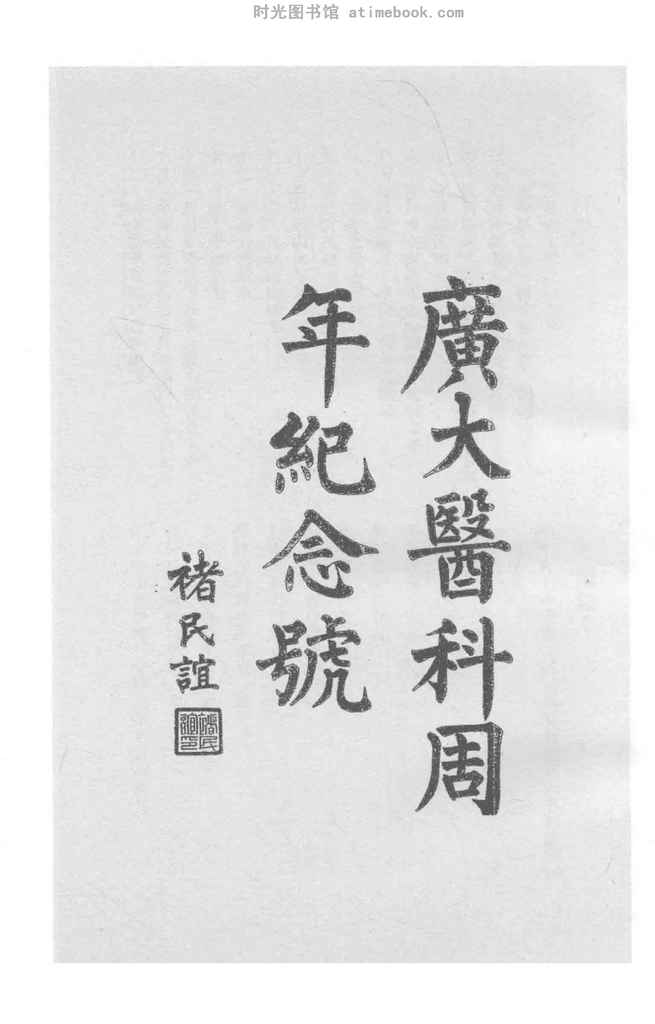 时光图书馆 atimebook.com
廣大醫科周
年紀念號
褚民誼